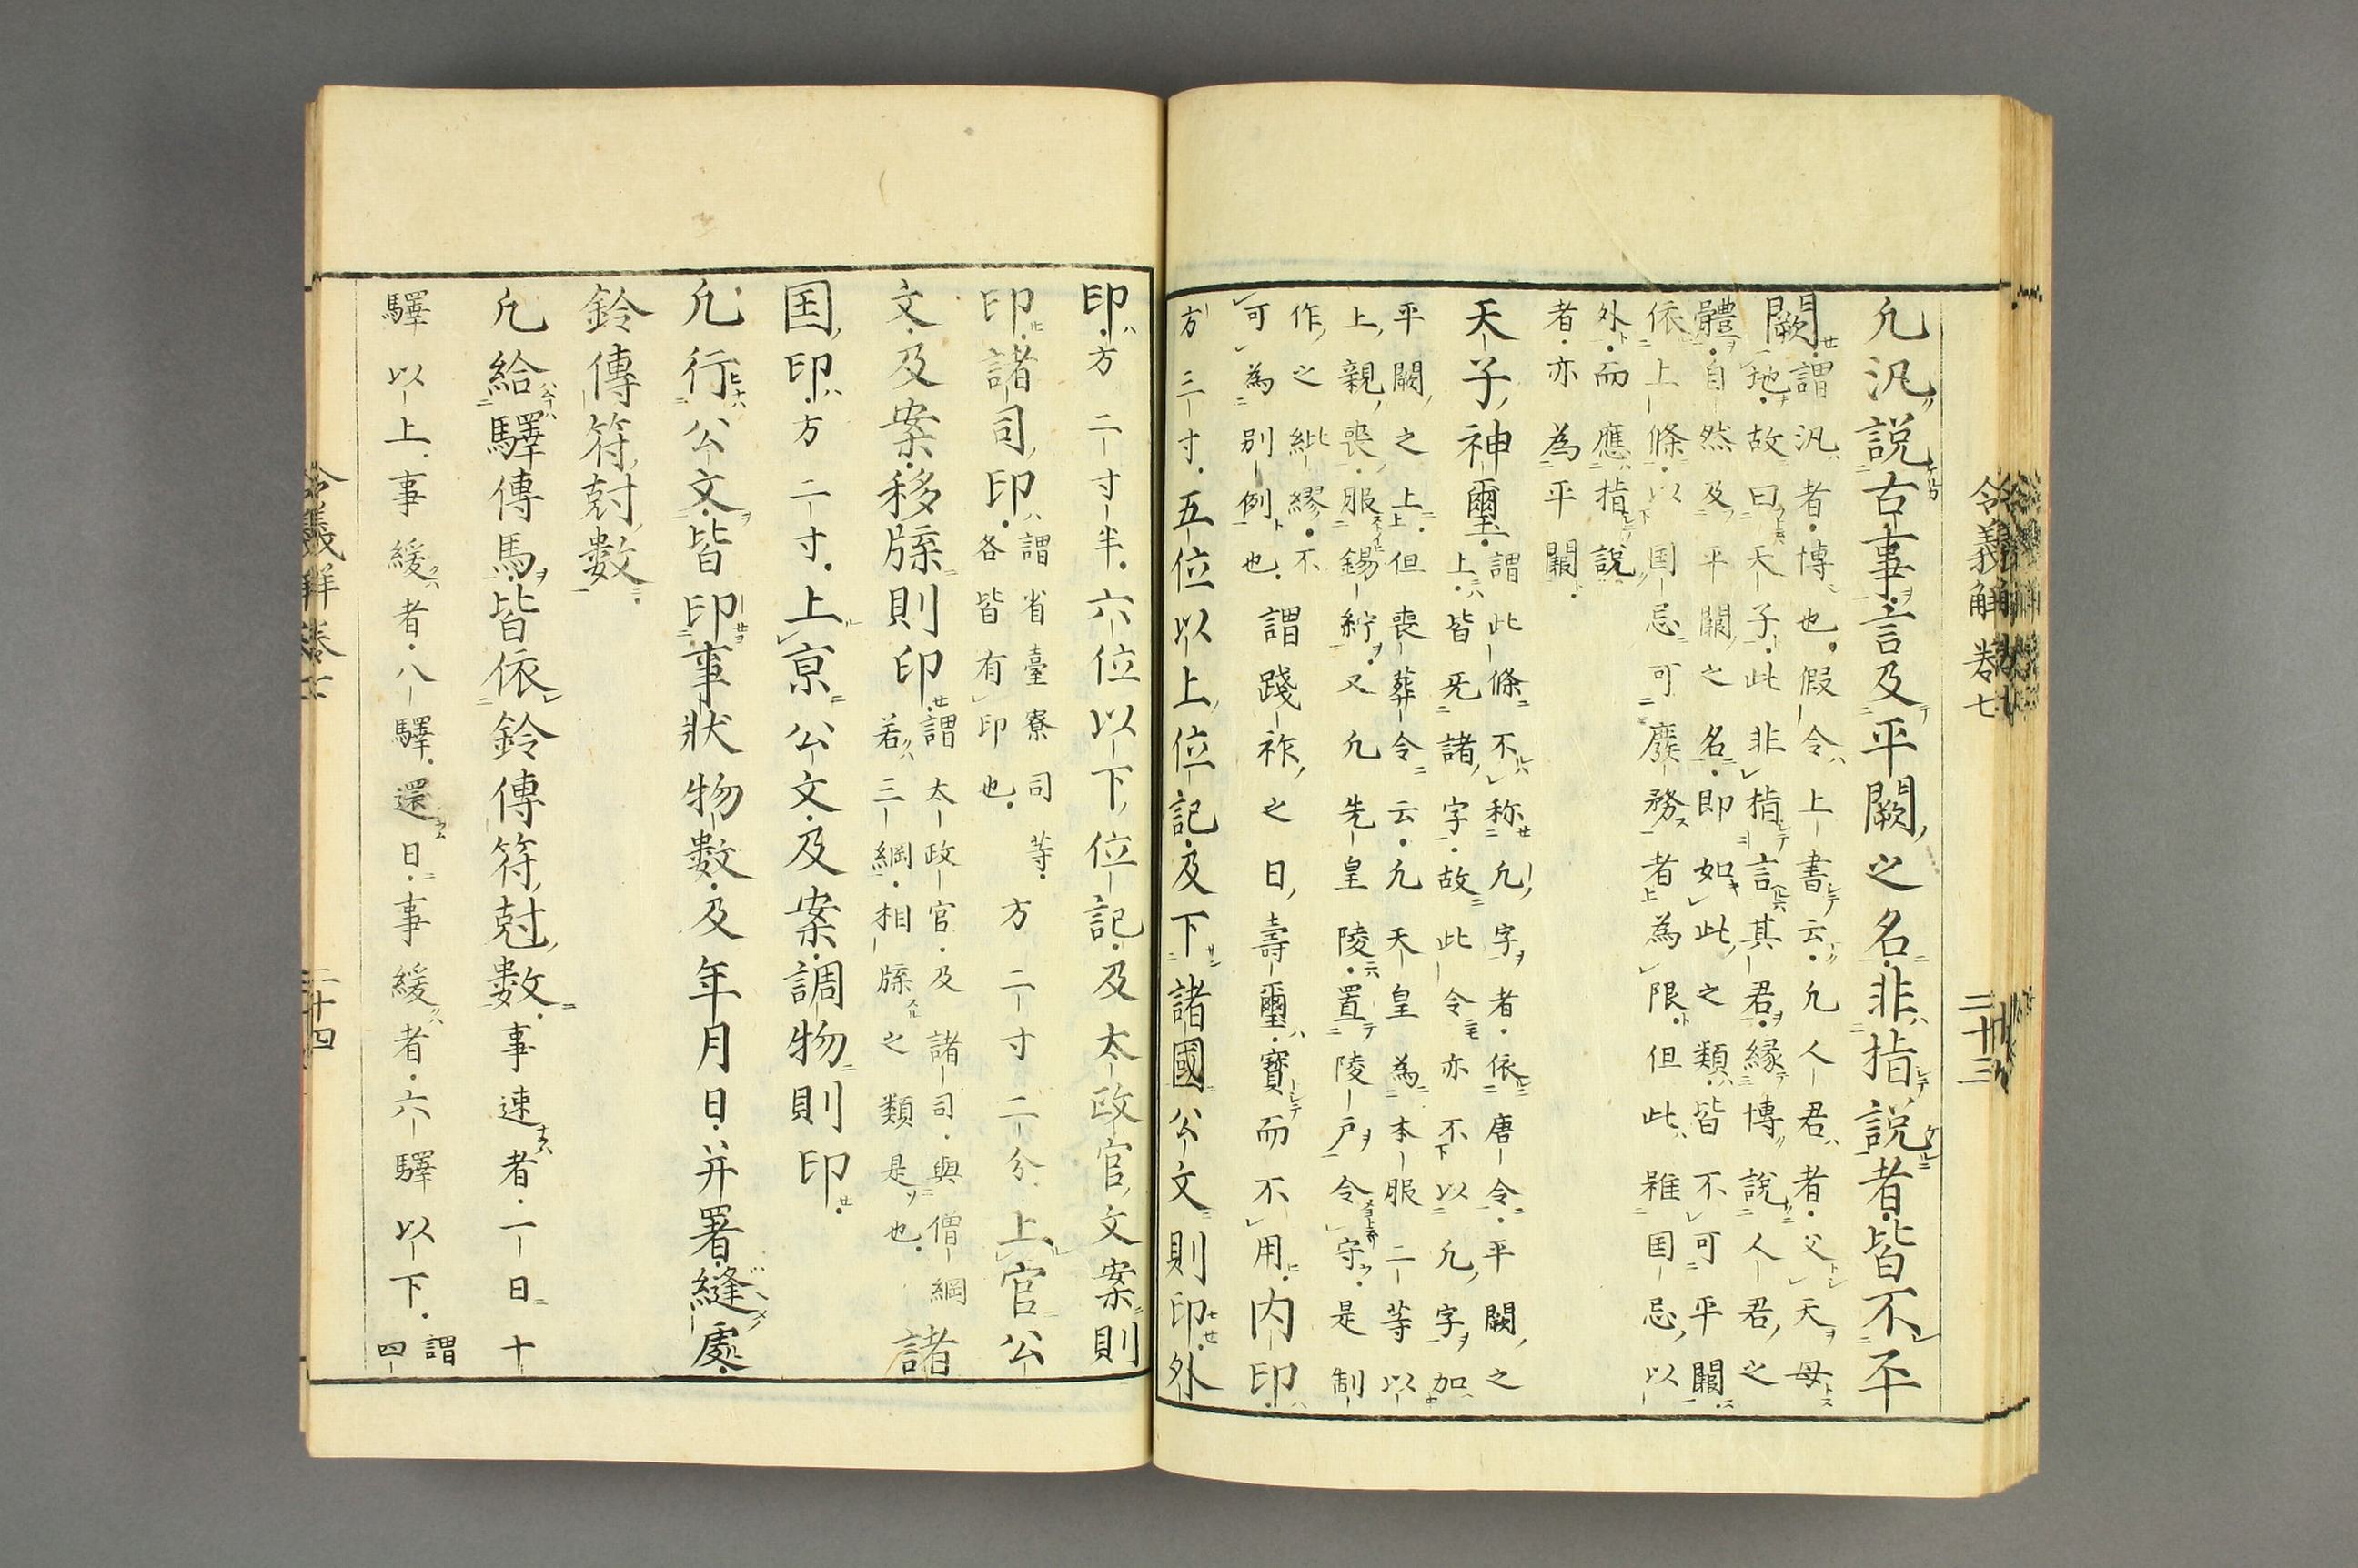 凢汎說古事言及平闕之名非指說者皆不平
闕
謂汎者博也假令上書云凢人君者父天母
地故曰天子此非指言其君緣博說人君之
體自然及平闕之名即如此之類皆不可平闕
依上條以国忌可廢務者為限但此雖国忌以
外而應指說
者亦為平闕
天子神璽
謂此條不称凢字者依唐令平闕之
上皆旡諸字故此令亦不以凢字加
平闕之上但喪葬令云凢天皇為本服二等以
上親喪服錫紵又凢先皇陵置陵戶令守是制
作之紕繆不
可為別例也
謂踐祚之日壽璽寶而不用内印
方三寸五位以上位記及下諸國公文則印外
印方二寸半六位以下位記及太政官文案則
印諸司印
謂省臺寮司等
各皆有印也
方二寸二分上官公
文及案移牒則印
謂太政官及諸司與僧綱
若三綱相牒之類是也
諸
国印方二寸上京公文及案調物則印
凢行公文皆印事狀物数及年月日并署縫處
鈴傳符尅數
凢給驛傳馬皆依鈴傳符尅數事速者一日十
驛以上事緩者八驛還日事緩者六驛以下
謂
四
令義解卷七
二十三
令義解卷七
二十四